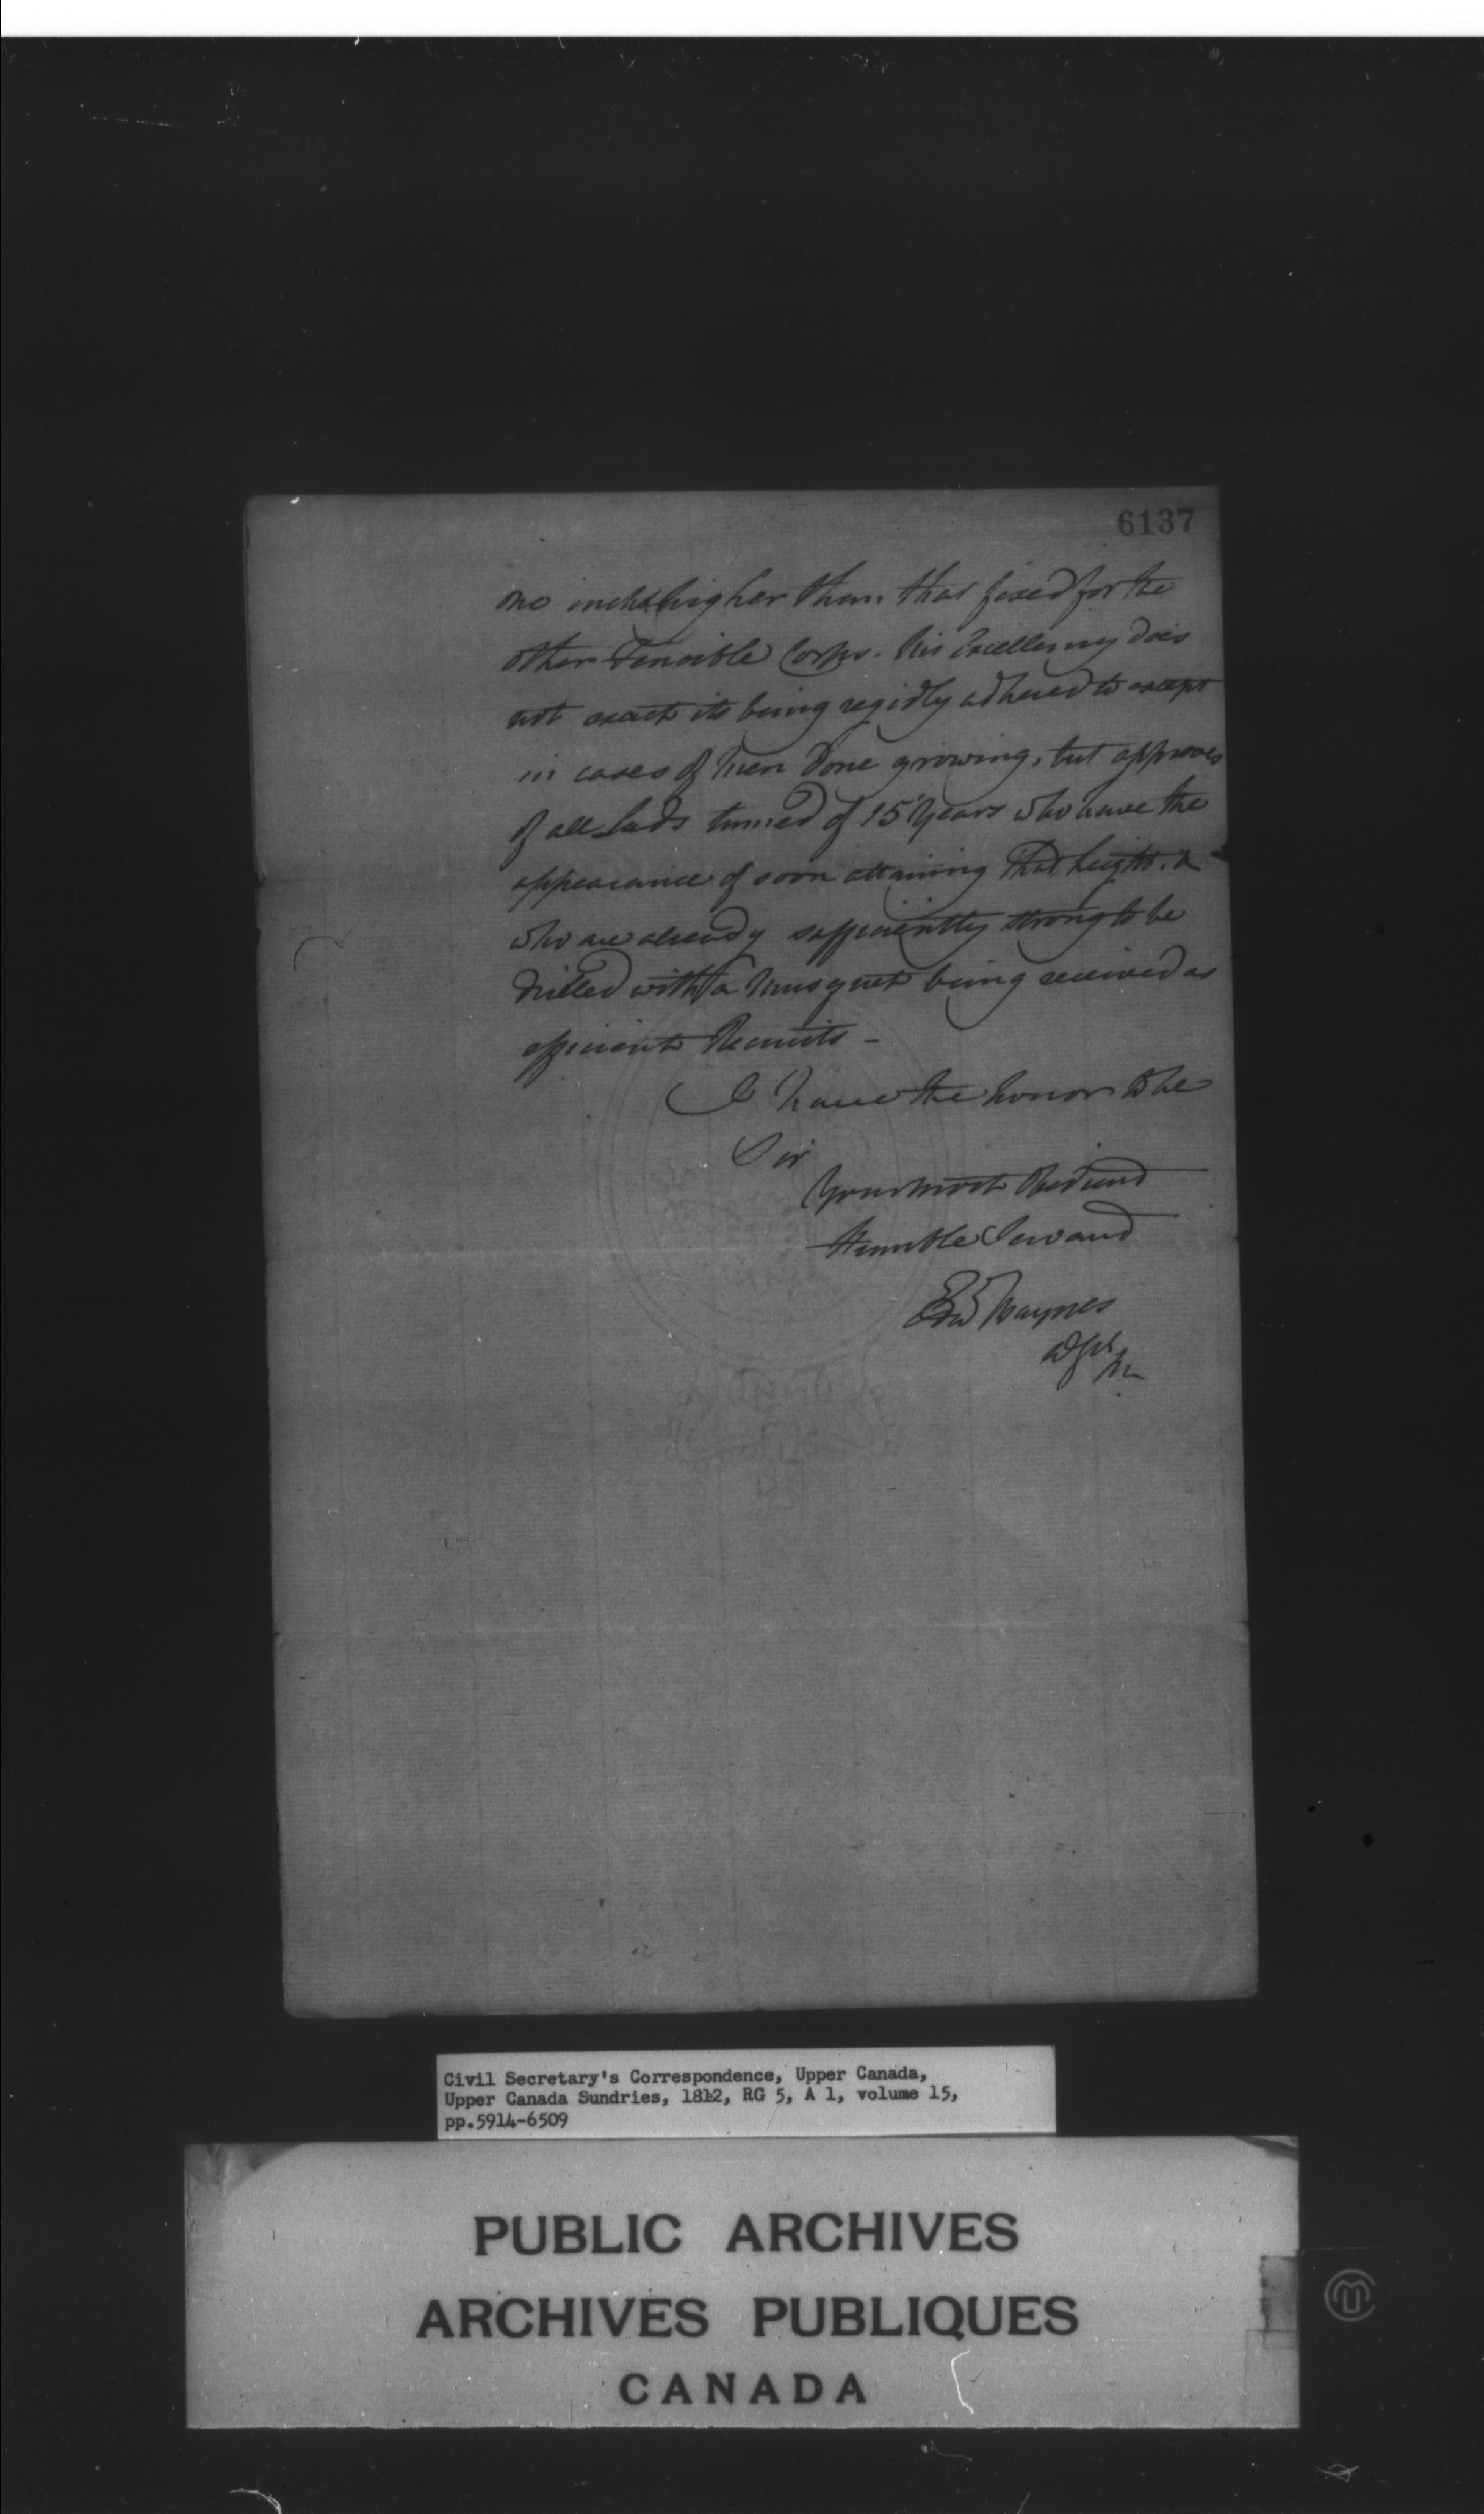 6137
one inch higher than that fixed for the
other Fencible Corps. his Excellency does
not exact its being regidly adhered to except
in cases of Men done growing, but approves
of all Lads turned of 15 Years who have the
appearance of soon attaining that height. &
who are already sufficiently strong to be
drilled with a Musquet being received as
efficient Recruits -
I have the honor to be
Sir
Your most Obedient
Humble Servant
Edw Baynes
Civil Secretary's Correspondence, Upper Canada,
Upper Canada Sundries, 1812, RG 5, A 1, volume 15,
pp.5914-6509
PUBLIC ARCHIVES
ARCHIVES PUBLIQUES
CANADA